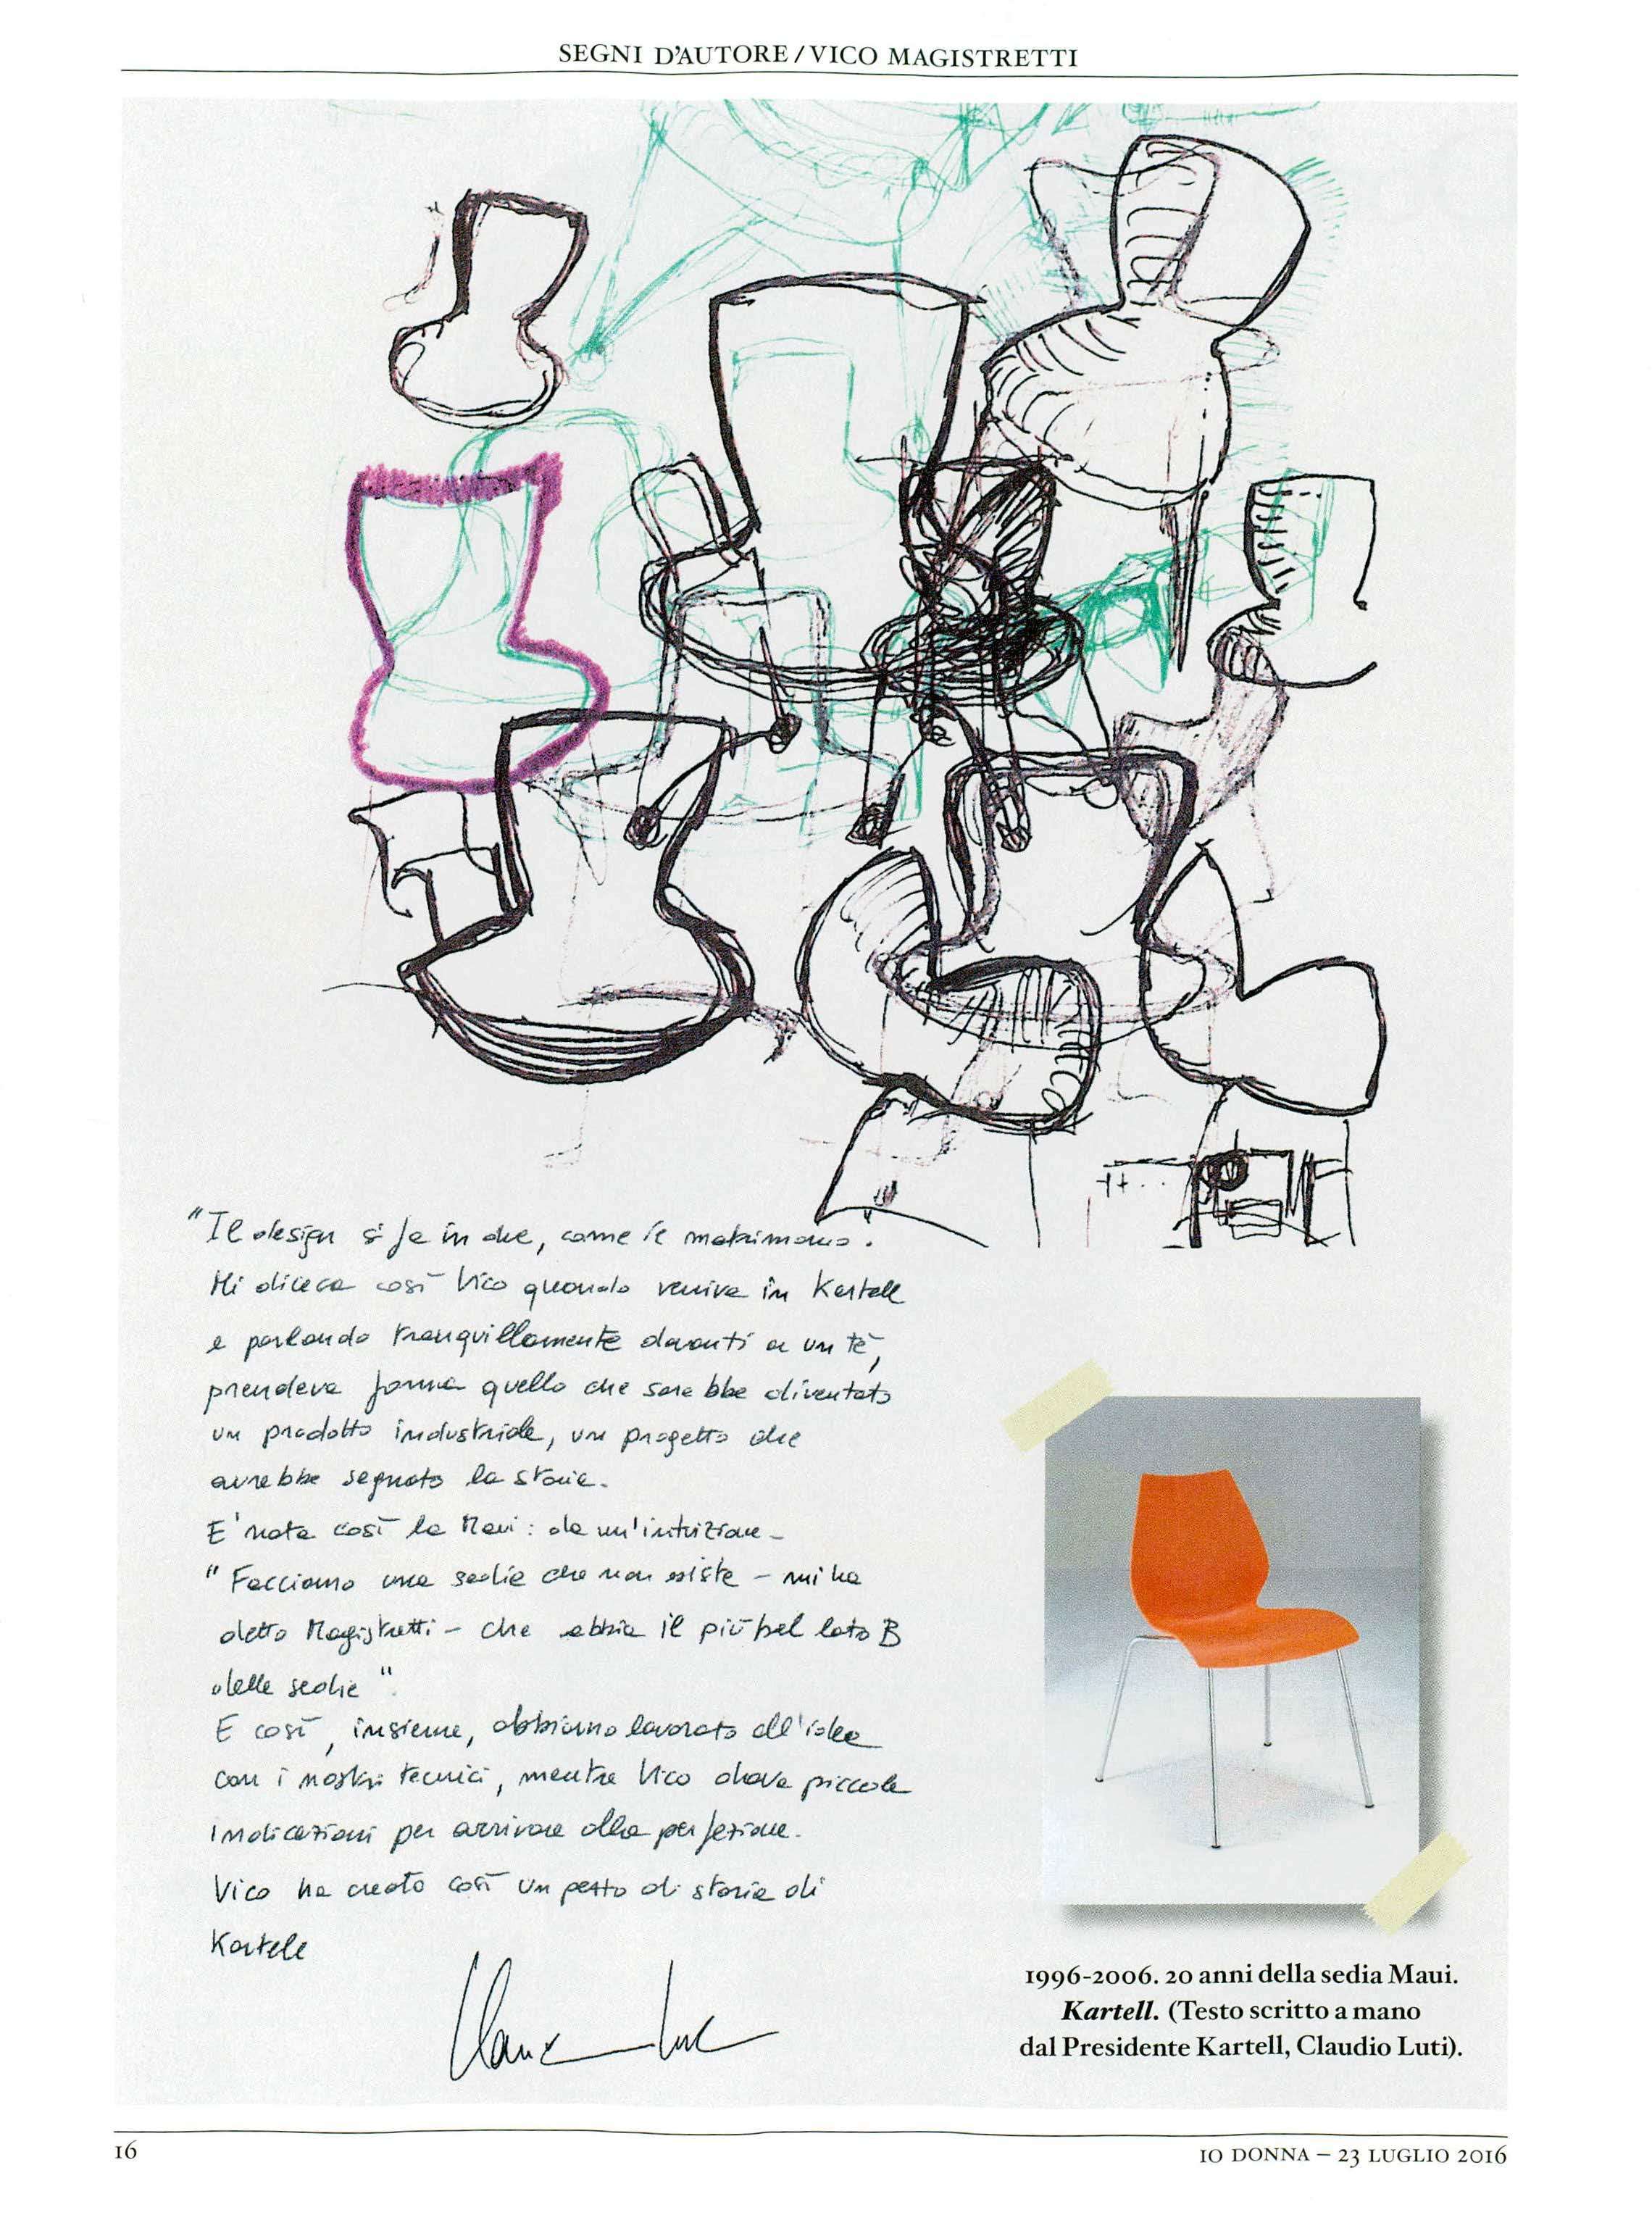 SEGNI D'AUTORE / VICO MAGISTRETTI
"Il design si fa in due, come il matrimonio.
Mi diceva così Vico quando veniva in Kartell
e parlando tranquillamente davanti a un tè,
prendeva forma quello che sarebbe diventato
un prodotto industriale, un progetto che
avrebbe segnato la storia.
E' nata così la Maui: da un'intuizione -
"Facciamo una sedia che non esiste - mi ha
detto Magistretti - che abbia il più bel lato B
delle sedie".
E così, insieme, abbiamo lavorato all'idea
con i nostri tecnici, mentre Vico dava piccole
indicazioni per arrivare alla perfezione.
Vico ha creato così un pezzo di storia di
Kartell
1996-2006. 20 anni della sedia Maui.
Kartell. (Testo scritto a mano
dal Presidente Kartell, Claudio Luti).
16
IO DONNA – 23 LUGLIO 2016